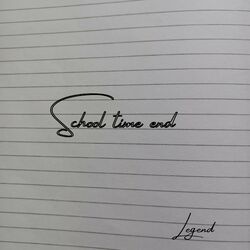 School time end
Legend